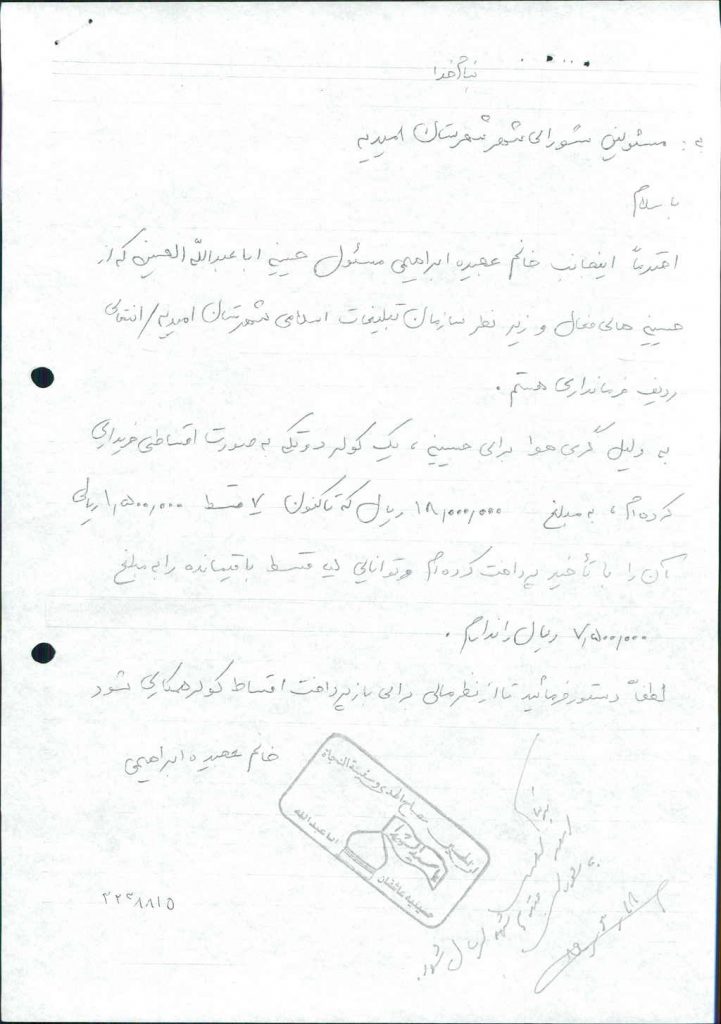 بنام خدا
به: مسئولین شورای شهر شهرستان امیدیه
با سلام
احتراماً اینجانب خانم عبیده ابراهیمی مسئول حسینیه اباعبدالله الحسین که از
حسینیه های فعال و زیر نظر سازمان تبلیغات اسلامی شهرستان امیدیه/انتهای
ردیف فرمانداری هستم.
به دلیل گرمی هوا برای حسینیه، یک کولر دو تکه به صورت اقساطی خریداری
کرده ام، به مبلغ ۱۸,۰۰۰,۰۰۰ ریال که تاکنون ۷ قسط ۱,۵۰۰,۰۰۰ ریالی
آن را با تأخیر پرداخت کرده ام و توانایی قسط باقیمانده را به مبلغ
۷,۵۰۰,۰۰۰ ریال را ندارم.
لطفاً دستور فرمائید تا از نظر مالی برای باز پرداخت اقساط کولر همکاری شود
خانم عبیده ابراهیمی
مصباح الهدی و سفینة النجاة
اباعبدالله
حسینیه عاشقان
ریال شود.
۳۲۳۸۸۱۵